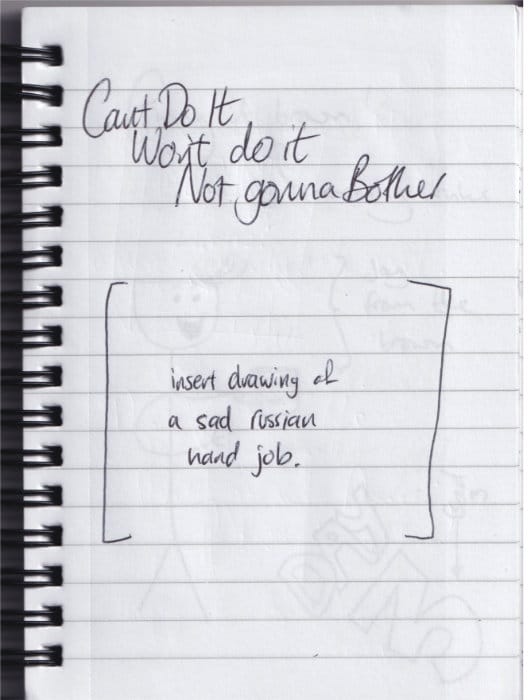 Can't Do It
Won't do it
Not gonna Bother
insert drawing of
a sad russian
hand job.